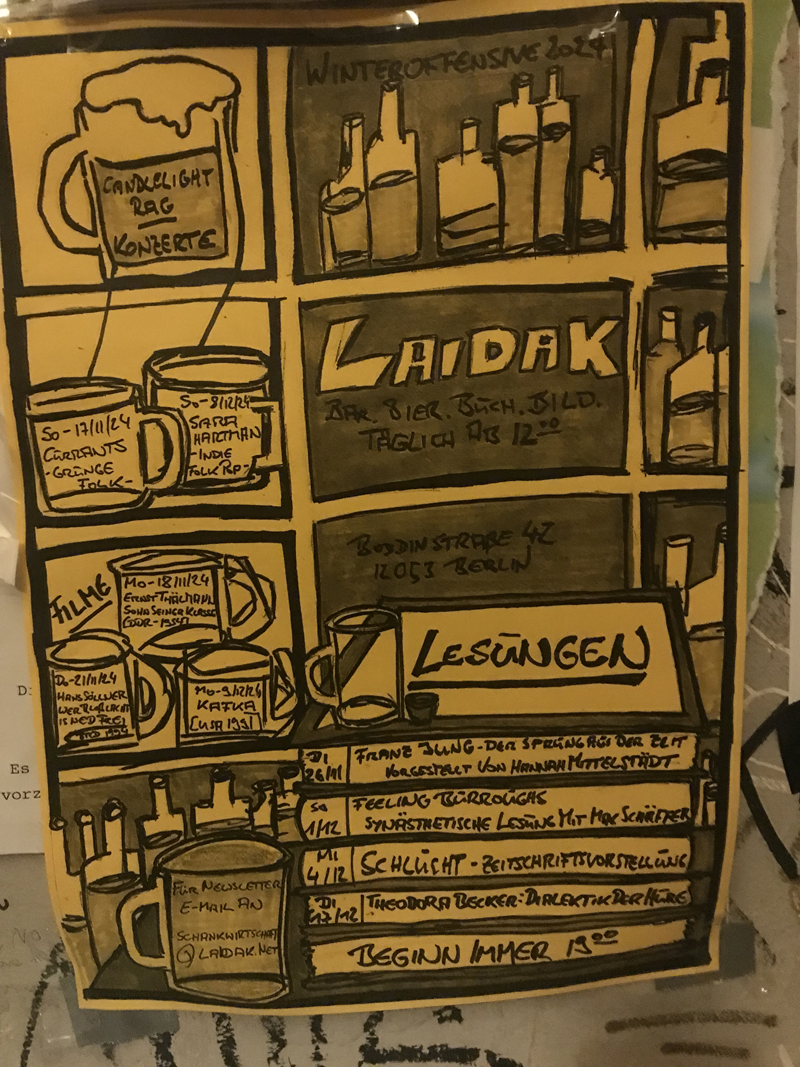 WINTEROFFENSIVE 2024
CANDLELIGHT
RAG
KONZERTE
LAIDAK
BAR. BIER. BUCH. BILD.
TÄGLICH AB 12⁰⁰
So-17/11/24
CURRANTS
-GRUNGE
FOLK-
So-8/12/24
SARA
HARTMAN
-INDIE
FOLK POP-
BODDINSTRAßE 42
12053 BERLIN
FILME
Mo-18/11/24
ERNST THÄLMANN
SOHN SEINER KLASSE
(DDR-1954)
Do-21/11/24
HANS SÖLLNER
WER
IS NED FREI
Mo-9/12/24
KAFKA
(USA 1991)
LESUNGEN
DI
26/11
FRANZ JUNG-DER SPRUNG AUS DER ZEIT
VORGESTELLT VON HANNAH MITTELSTÄDT
So
1/12
FEELING BURROUGHS
SYNÄSTHETISCHE LESUNG MIT MAX SCHÄFFER
MI
4/12
SCHLUCHT-ZEITSCHRIFTSVORSTELLUNG
DI
17/12
THEODORA BECKER: DIALEKTIK DER HURE
BEGINN IMMER 19⁰⁰
FÜR NEWSLETTER
E-MAIL AN
SCHANKWIRTSCHAFT
@LAIDAK.NET
Es
vorz